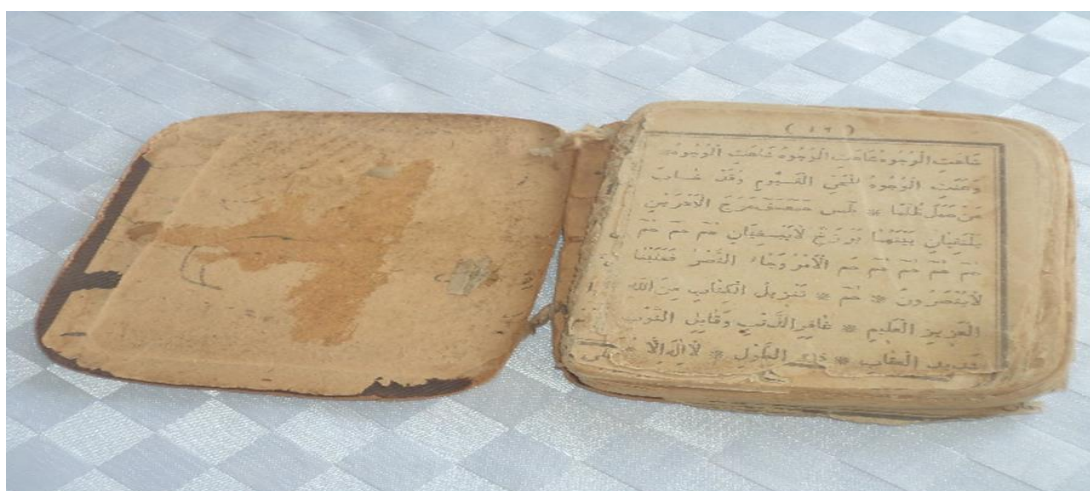 ( ٤٦ )
شَاهَتِ الْوُجُوهُ شَاهَتِ الْوُجُوهُ شَاهَتِ الْوُجُوهُ
وَعَنَتِ الْوُجُوهُ لِلْحَيِّ الْقَيُّومِ وَقَدْ خَابَ
مَنْ حَمَلَ ظُلْمًا * طٰسٓ حٰمٓعٓسٓقٓ مَرَجَ الْبَحْرَيْنِ
يَلْتَقِيَانِ بَيْنَهُمَا بَرْزَخٌ لَا يَبْغِيَانِ حٰمٓ حٰمٓ حٰمٓ
حٰمٓ حٰمٓ حٰمٓ حٰمٓ حُمَّ الْأَمْرُ وَجَاءَ النَّصْرُ فَعَلَيْنَا
لَا يُنْصَرُونَ * حٰمٓ * تَنْزِيلُ الْكِتَابِ مِنَ اللهِ
الْعَزِيزِ الْعَلِيمِ * غَافِرِ الذَّنْبِ وَقَابِلِ التَّوْبِ
شَدِيدِ الْعِقَابِ * ذِي الطَّوْلِ * لَا إِلٰهَ إِلَّا هُوَ